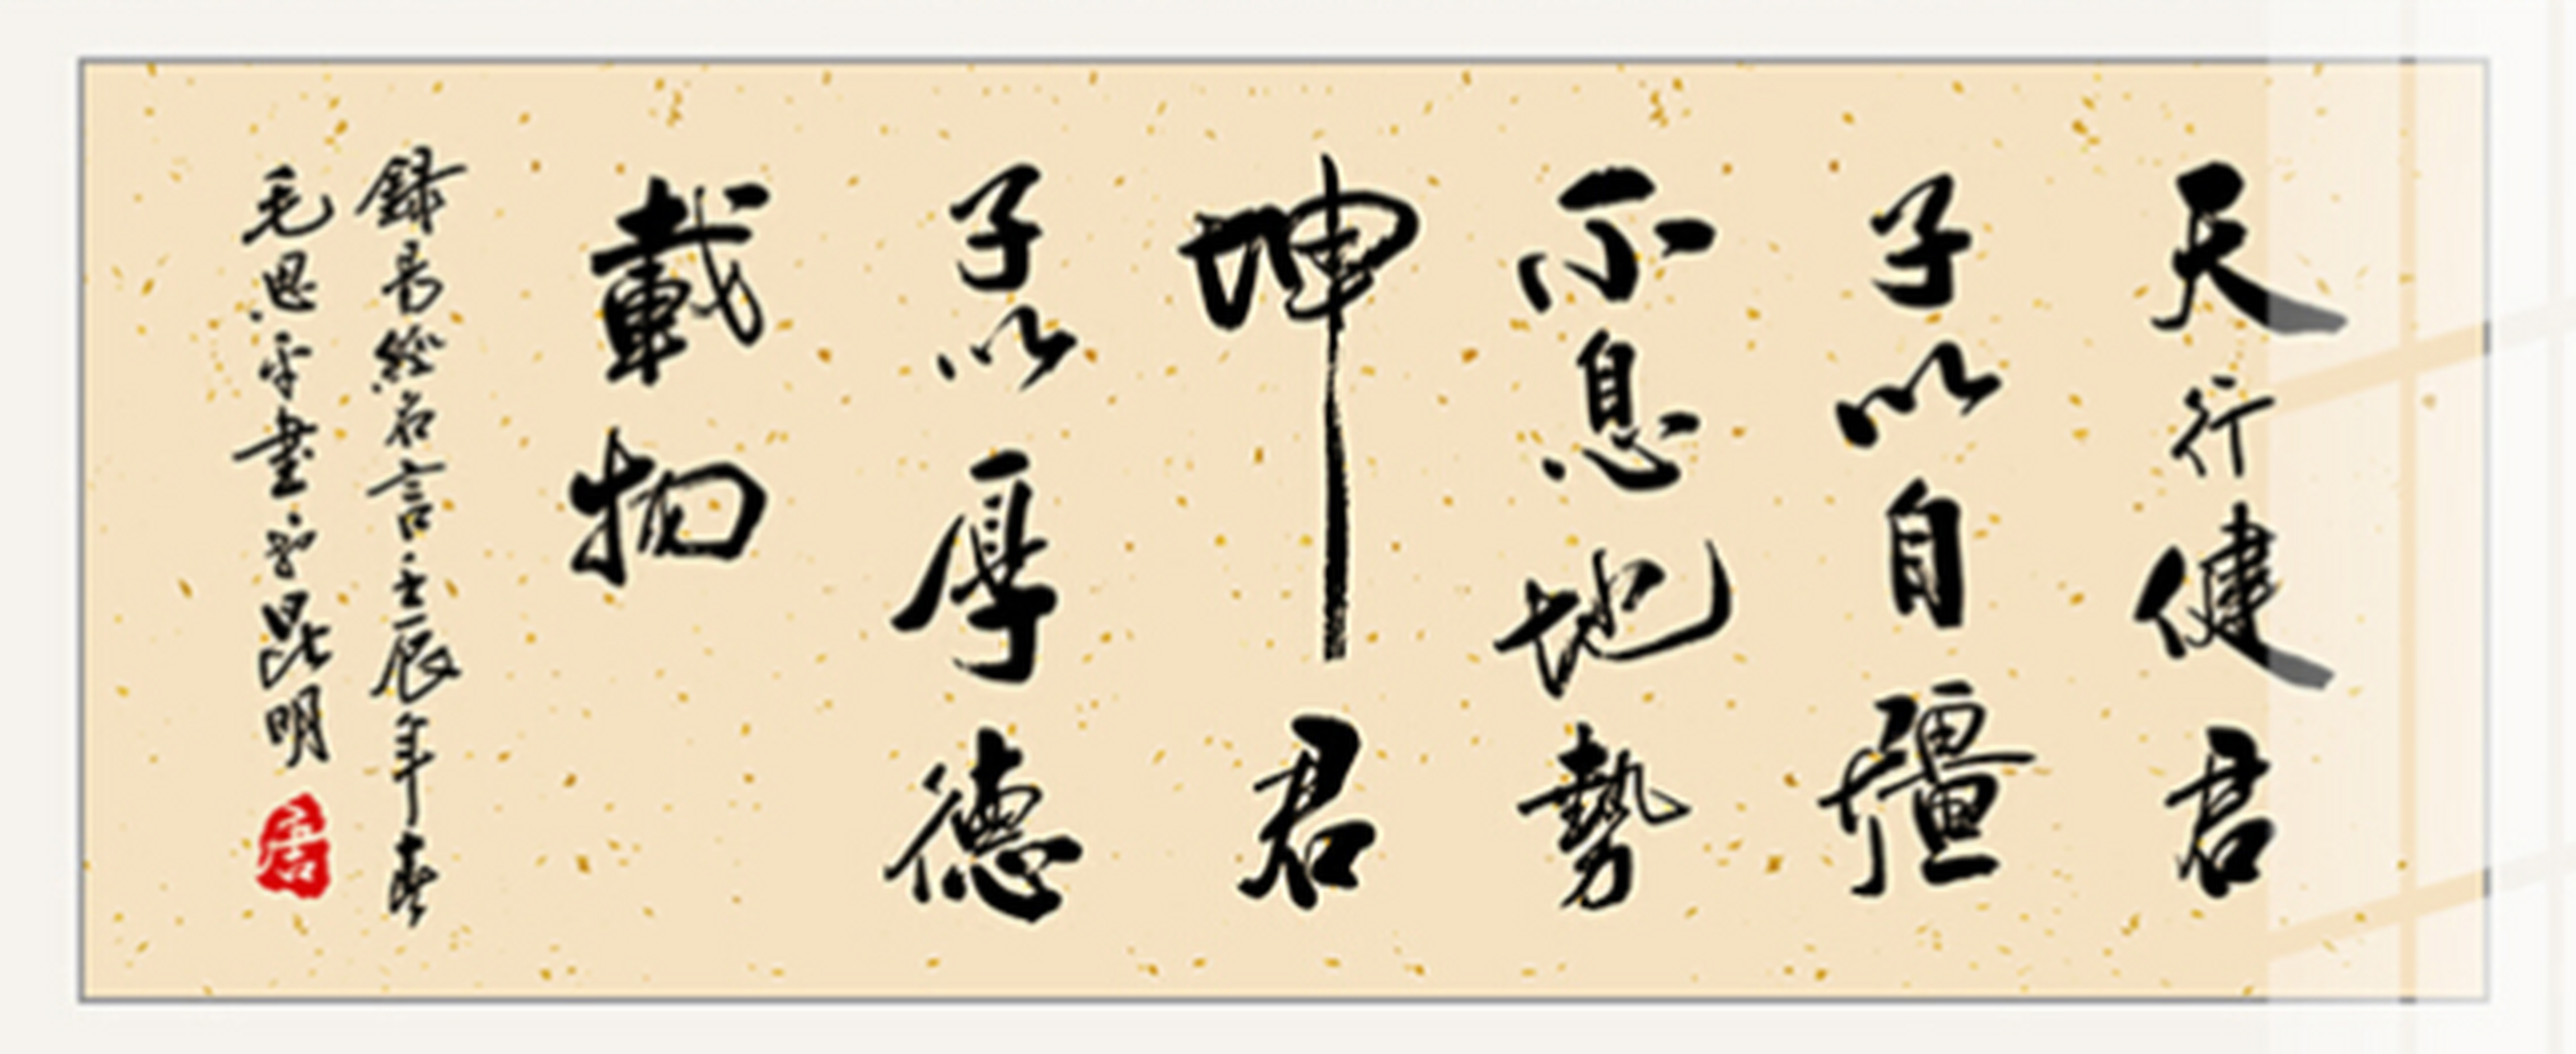 天行健君
子以自彊
不息地勢
坤君
子以厚德
載物
録易經名言壬辰年春
毛思平書於昆明